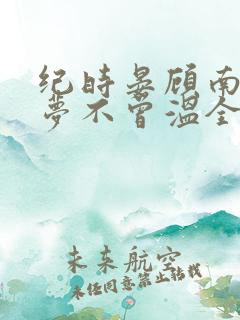 纪时晏顾南
梦不曾温全
未来航空
未经同意禁止转载